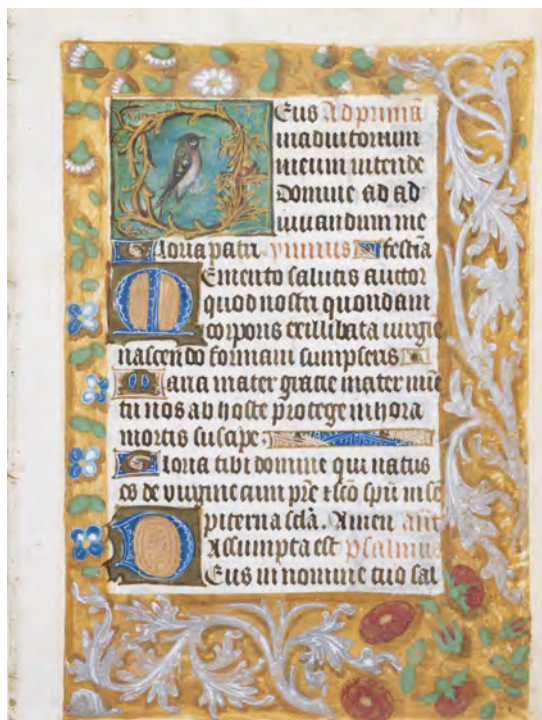 Deus Ad primā
in adiutorium
meum intende
Domine ad ad
iuuandum me
Gloria patri. ymnus festīa
Memento salutis auctor
quod nostri quondam
corporis ex illibata uirgīe
nascendo formam sumpseris
Maria mater gracie mater mīe
tu nos ab hoste protege in hora
mortis suscipe.
Gloria tibi domine qui natus
es de uirgine cum pr̄e ⁊ sc̄o spū in sē
piterna sc̄la. Amen an̄t
Assumpta est psalmus
Deus in nomine tuo sal